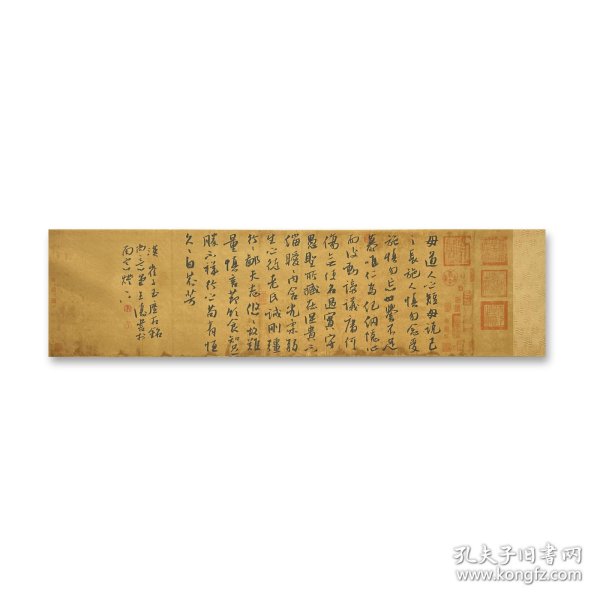 毋道人之短毋説己
之長施人慎勿念受
施慎勿忘世譽不足
慕唯仁為紀綱隱心
而後動謗議庸何
傷無使名過實守
愚聖所臧在涅貴不
緇曖々内含光柔弱
生之徒老氏誡剛彊
行々鄙夫志悠々故難
量慎言節飲食知足
勝不祥行之苟有恒
久々自芬芳
漢崔子玉座右銘
書於
南窗燈下
孔夫子旧书网
www.kongfz.com